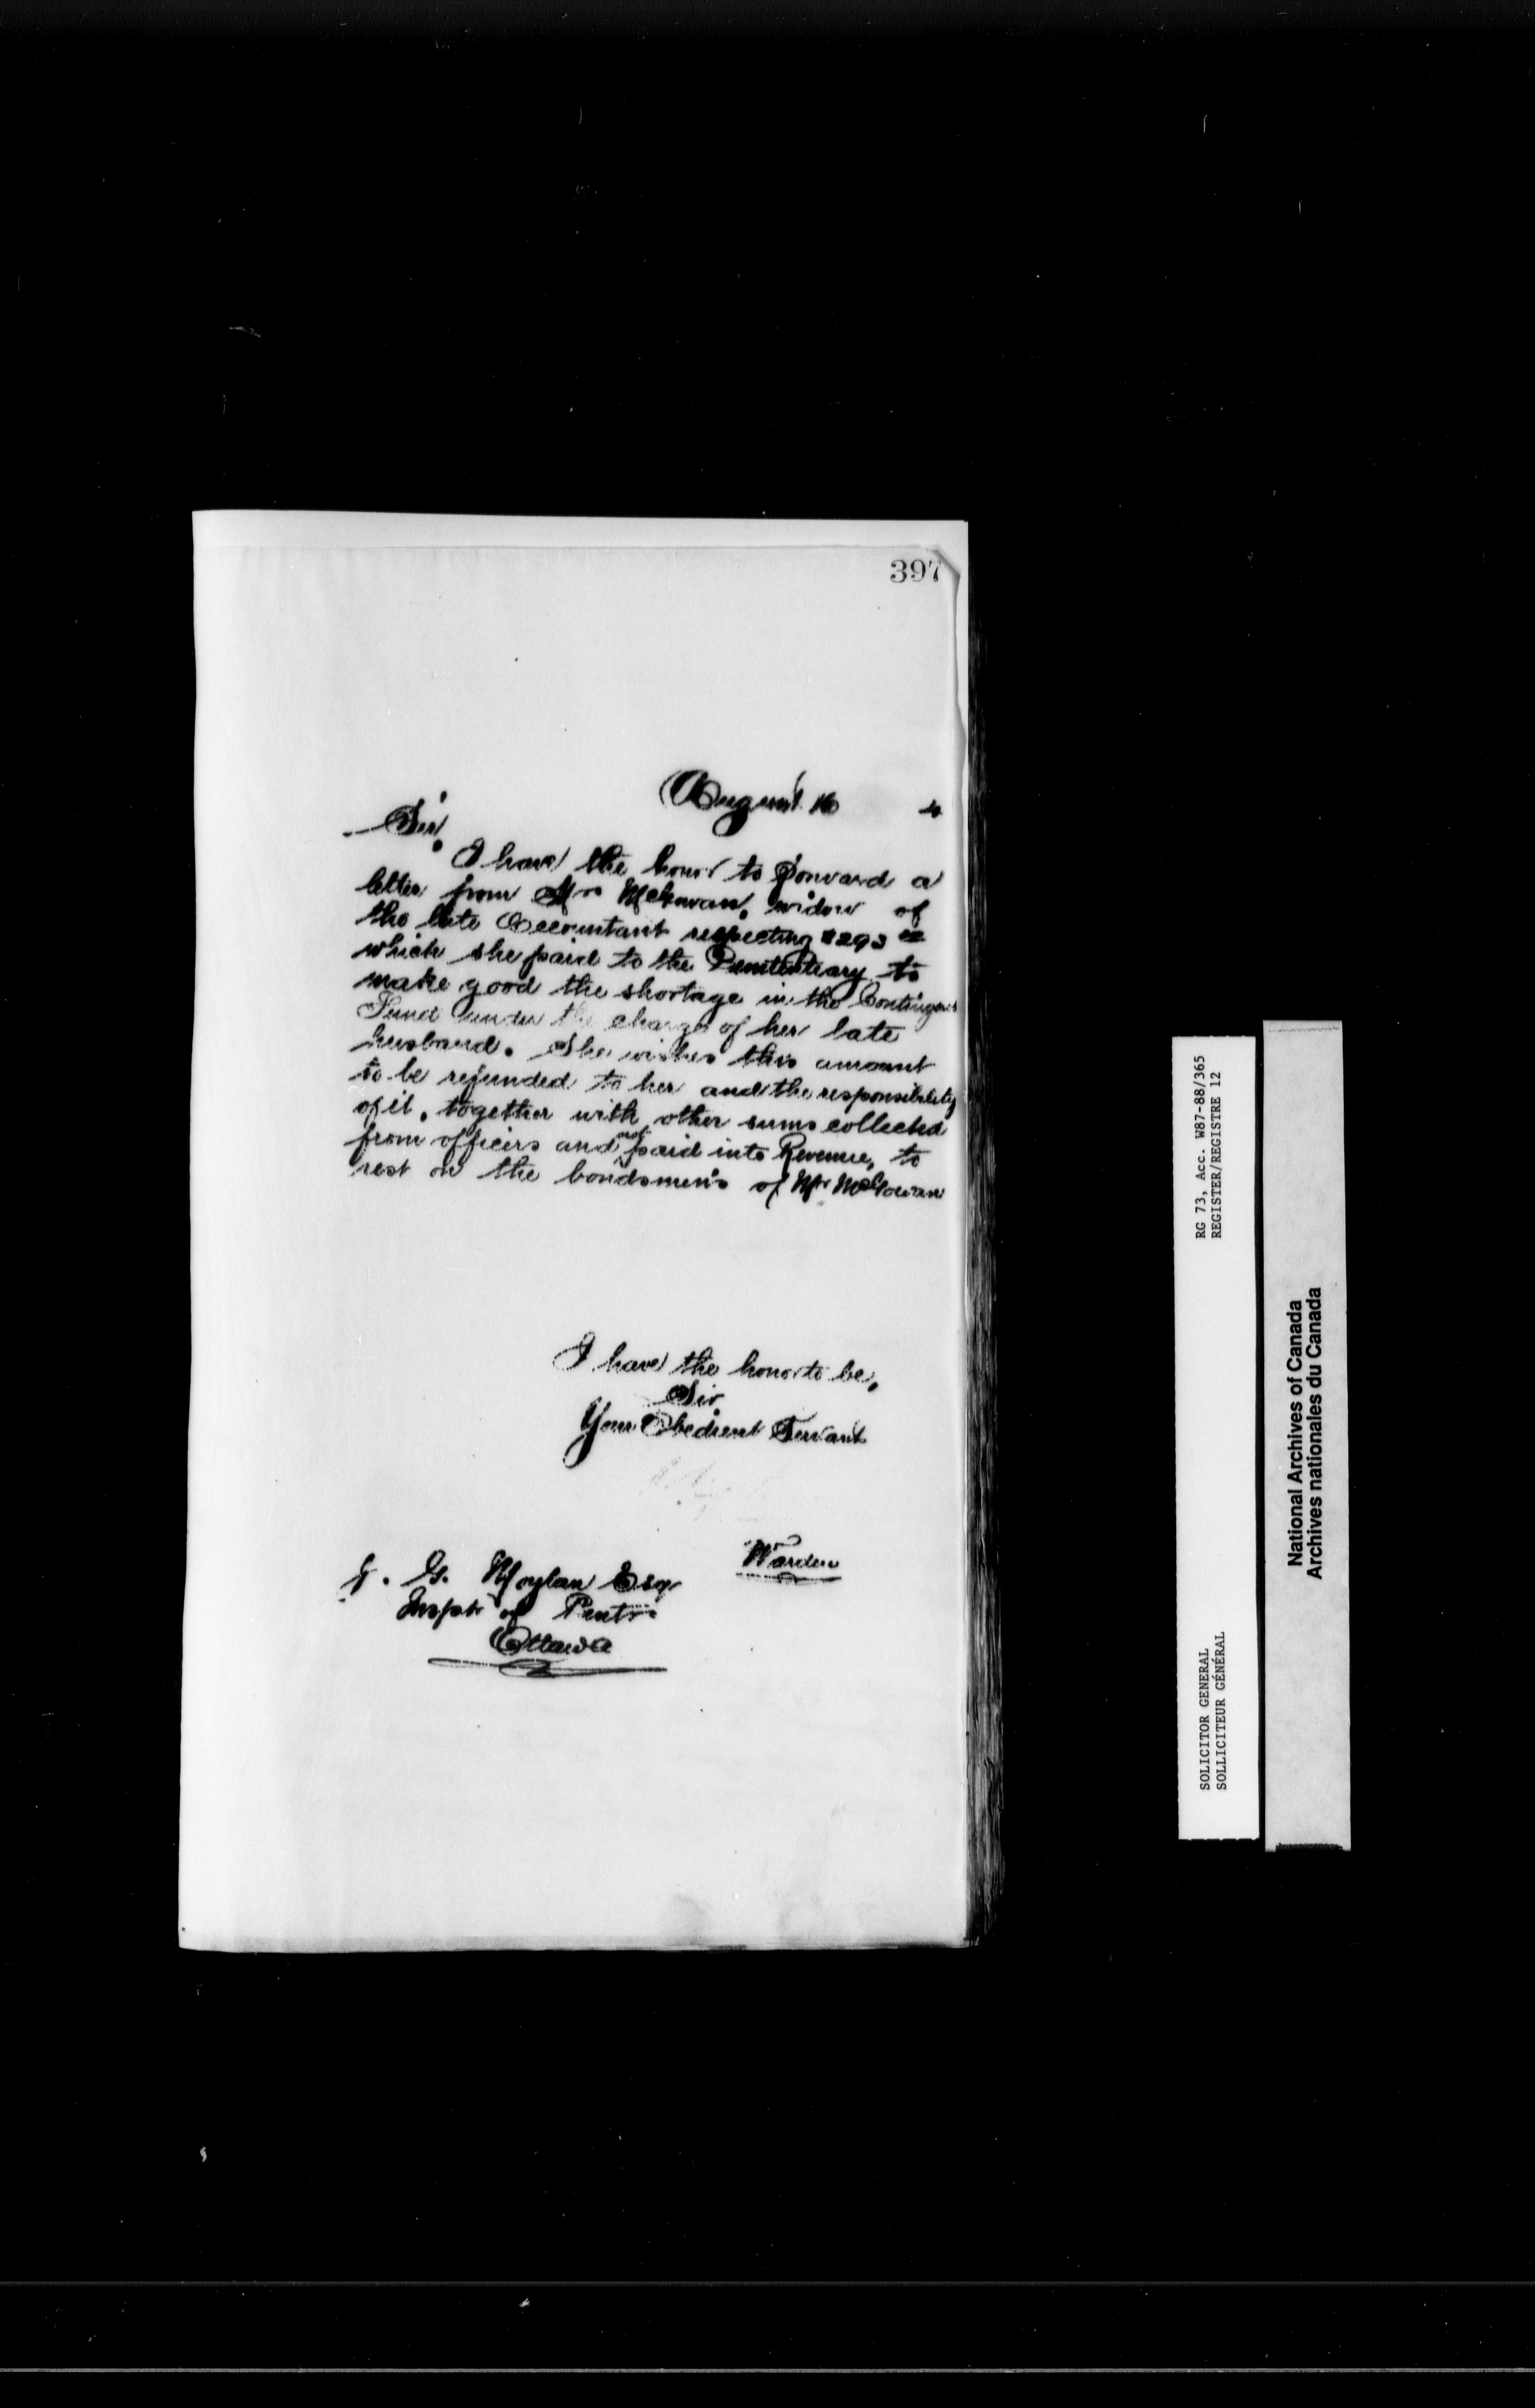 397
August 16 4
Sir,
I have the honor to forward a
letter from Mrs McGowan, widow of
the late Accountant respecting $293
which she paid to the Penitentiary to
make good the shortage in the
Fund under the charge of her late
husband. She wishes this amount
to be refunded to her and the responsibility
of it, together with other sums collected
from officers and not paid into Revenue, to
rest on the bondsmen's of Mr McGowan
I have the honor to be,
Sir,
Your Obedient Servant
Warden
J. G. Moylan Esq
Inspr of Pents
Ottawa
RG 73, Acc. W87-88/365
REGISTER/REGISTRE 12
SOLICITOR GENERAL
SOLLICITEUR GÉNÉRAL
National Archives of Canada
Archives nationales du Canada